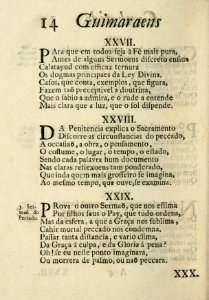 14 Guimaraens
XXVII.
PAra que em todos seja a Fè mais pura,
Antes de alguns Sermoens discreto ensina
Calatayud com efficaz ternura
Os dogmas principaes da Ley Divina.
Casos, que conta, exemplos, que figura,
Fazem taõ preceptivel a doutrina,
Que o sabio a admira, e o rude a entende
Mais clara que a luz, que o sol dispende.
XXVIII.
DA Penitencia explica o Sacramento
Discorre as circunstancias do peccado,
A occasiaõ, a obra, o pensamento,
O costume, o lugar, o tempo, o estado,
Sendo cada palavra hum documento
Nas claras reflexoens taõ ponderado,
Que inda quem mais grosseiro se imagina,
Ao mesmo tempo, que ouve, se examina.
XXIX.
2. Sermaõ do Peccado.
PRova o outro Sermaõ, que nos estima
Por filhos seus o Pay, que tudo ordena,
Mas da esfera, a que a Graça nos sublima,
Cahir mortal peccado nos condemna.
Passar tanta distancia, e vario clima,
Da Graça á culpa, e da Gloria á pena?
Oh! se eu neste ponto imaginára,
Ou morrera de pasmo, ou naõ peccára.
XXX.